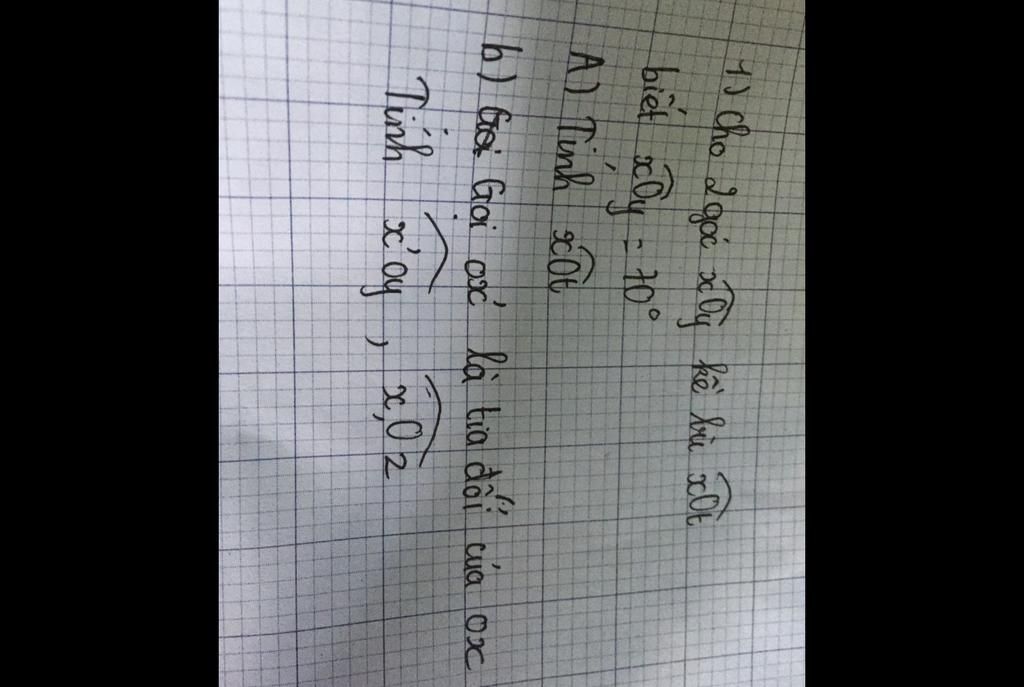 1) Cho 2 góc xOy kề bù xOt
biết xOy = 70°
A) Tính xOt
b) Gọi ox' là tia đối của ox
Tính x'oy, x,Oz